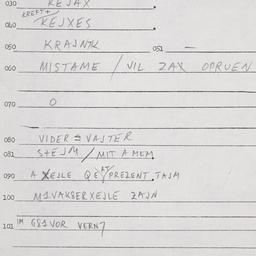 030 REJAX
KREFT+
040 REJXES
050 KRAJNTK 051 —
060 MISTAME / VIL ZAX OPRUEN
070 O
080 VIDER = VAJTER
081 S+EJM / MIT A MEM
090 A XEJLE QE AT/PREZENT, TAJM
100 M1VAKSERXEJLE ZAJN
101 IM G81VOR VERN7